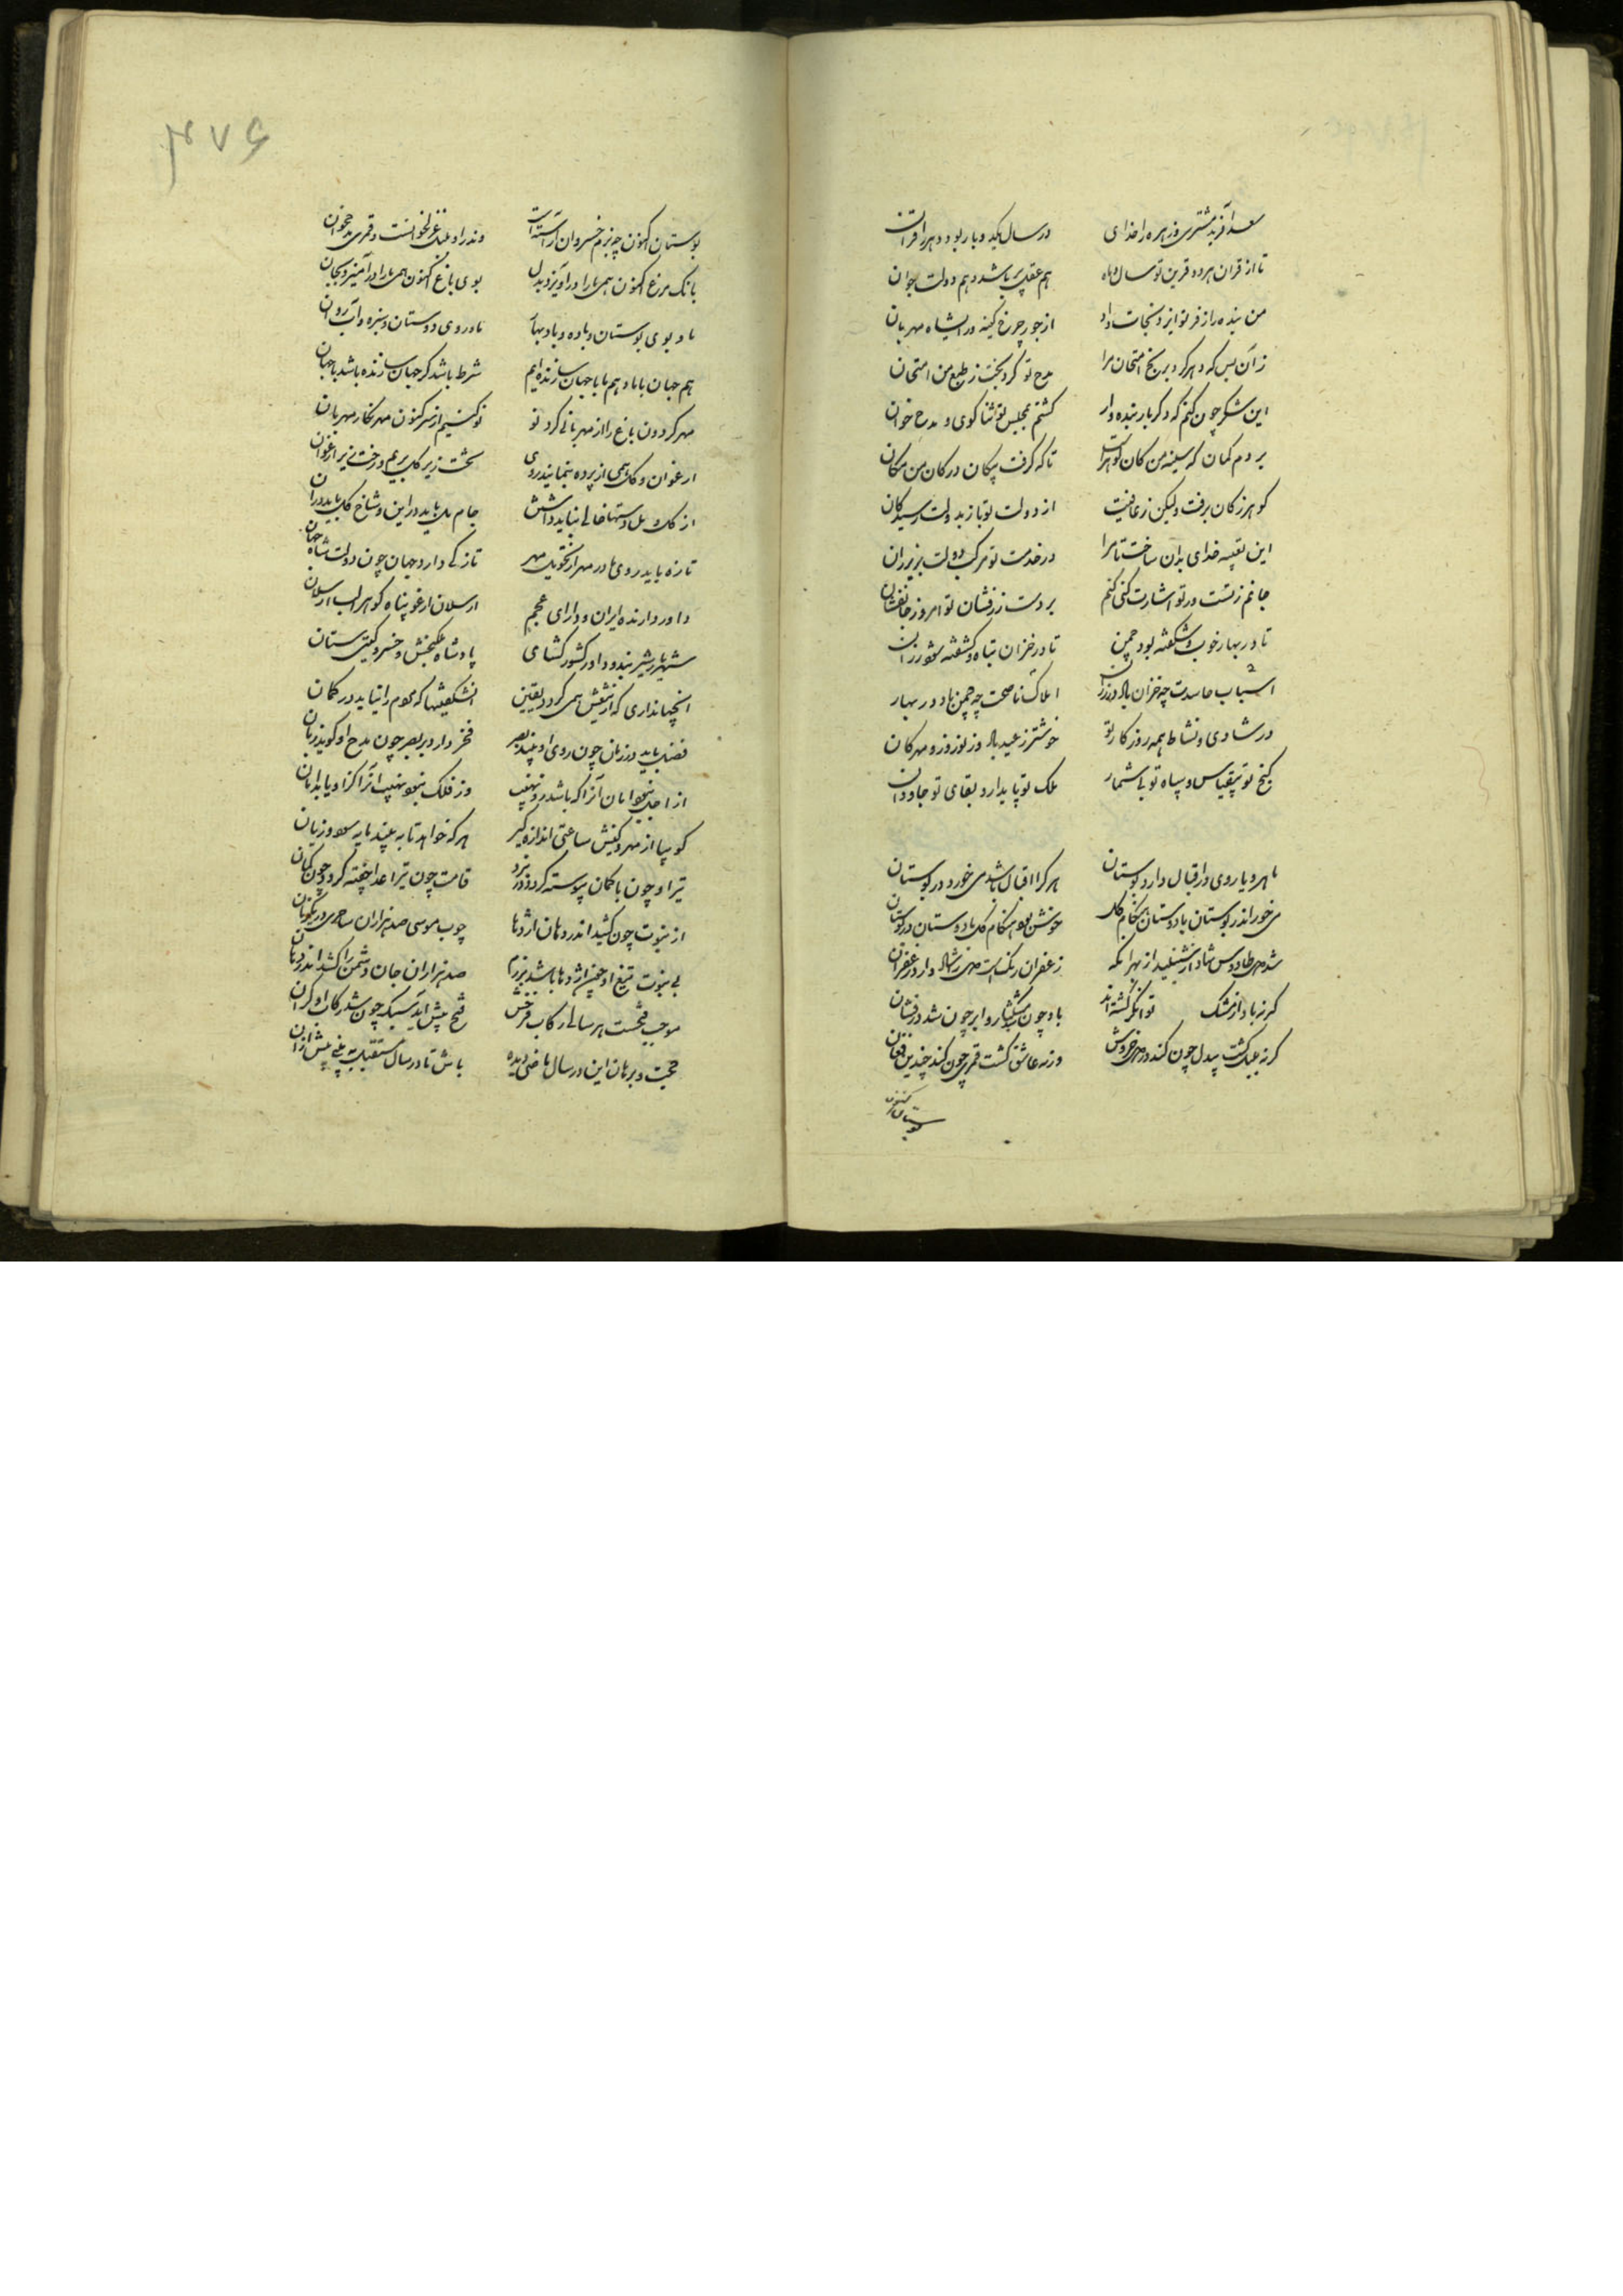 سعد آفرید مشتری و زهره را خدای در سال یکدو بار بود هر دو را قران
تا از قران هر دو قرین تو سال و ماه هم عقل پیر باشد و هم دولت جوان
من بنده را ز فر تو ایزد نجات داد از جور چرخ کینه ور ای شاه مهربان
زآن پس که دهر کرد برنج امتحان مرا مدح تو کرد بخت ز طبع من امتحان
این شکر چون کنم که دگر بار بنده وار گشتم بمجلس تو ثنا گوی و مدح خوان
بردم گمان که سینه من کان گوهر است تا که گرفت پیکان در کان من مکان
گوهر ز کان برفت ولیکن ز عافیت از دولت تو باز بدولت رسید کان
این تعبیه خدای بدان ساخت تا مرا در خدمت تو مرکب دولت بزیر ران
جانم ز تست ور تو اشارت کنی کنم بر دست زرفشان تو امروز جانفشان
تا در بهار خوب و شکفته بود چمن تا در خزان تباه و کشفته شود رزان
اسباب حاسدت چو خزان باد و رزان املاک ناصحت چه چمن باد در بهار
در شادی و نشاط همه روزگار تو خوشتر ز عید باد و ز نوروز و مهرکان
گنج تو بیقیاس و سپاه تو بی شمار ملک تو پایدار و بقای تو جاودان
ماهرو یا روی در اقبال دارد بوستان هر کرا اقبال باشد می خورد در بوستان
می خور اندر بوستان با دوستان هنگام گل خوش بود هنگام گل با دوستان در بوستان
زعفران رنگ است
گر ز باد از مشک توانگر گشته اند باد چون مشکین شد و ابر چون شد درفشان
گر نه بلبل گشت بیدل چون کند چندین خروش ور نه عاشق گشت قمری چون کند چندین فغان
بوستان اکنون
۳۷۶
بوستان اکنون چه بزم خسروان آراسته است وندر او بلبل غزلخوانست و قمری مدح خوان
بانگ مرغ اکنون همی ما را در آویزد بدل بوی باغ اکنون همی ما را در آمیزد بجان
ما و بوی بوستان و باده و باد بهار ما و روی دوستان و سبزه و آب روان
هم جهان با ما و هم ما با جهان سازنده ایم شرط باشد گر جهان سازنده باشد با جهان
مهر گردون باغ را از مهربانی کرد نو نو کنیم از سر کنون مهر نگار مهربان
ارغوان و گل همی از پرده بنمایند روی تخت زیر گل بریم و رخت زیر ارغوان
از گل و مل دستها خالی نباید داشتن جام مل باید در این و شاخ گل باید در آن
تازه باید روی ما در مهر تازگی دارد جهان چون دولت شاه جهان
داور دارنده ایران و دارای عجم ارسلان ارغو پناه گوهر الب ارسلان
شهریار شیر بند و داور کشور گشای پادشاه ملک بخش و خسرو گیتی ستان
آنجهانداری که از تیغش همی گردد یقین آن شگفتیها که مردم را نیاید در گمان
فضل یابد در زمان چون روی او بیند بصر فخر دارد بر بصر چون مدح او گوید زبان
از اجل نبود امان آنرا که باشد زو نهیب وز فلک نبود نهیب آنرا کز او یابد امان
گو بیا از مهر و کینش ساعتی اندازه گیر هر که خواهد تا به بیند مایه سود و زیان
تیر او چون با کمان پیوسته گردد در نبرد قامت چون تیر اعدا خفته گردد چون کمان
از نبوت چون کشید اندر دهان اژدها چوب موسی صد هزاران ساحری در یکزمان
بی نبوت تیغ او چون اژدها باشد برزم صد هزاران جان دشمن را کشد اندر دهان
موجب فتحست هر سالی رکاب فتح پیش آید سبک چون شد رکاب او گران
حجت و برهان این در سال ماضی دیده باش تا در سال مستقبل به بینی پیش از آن